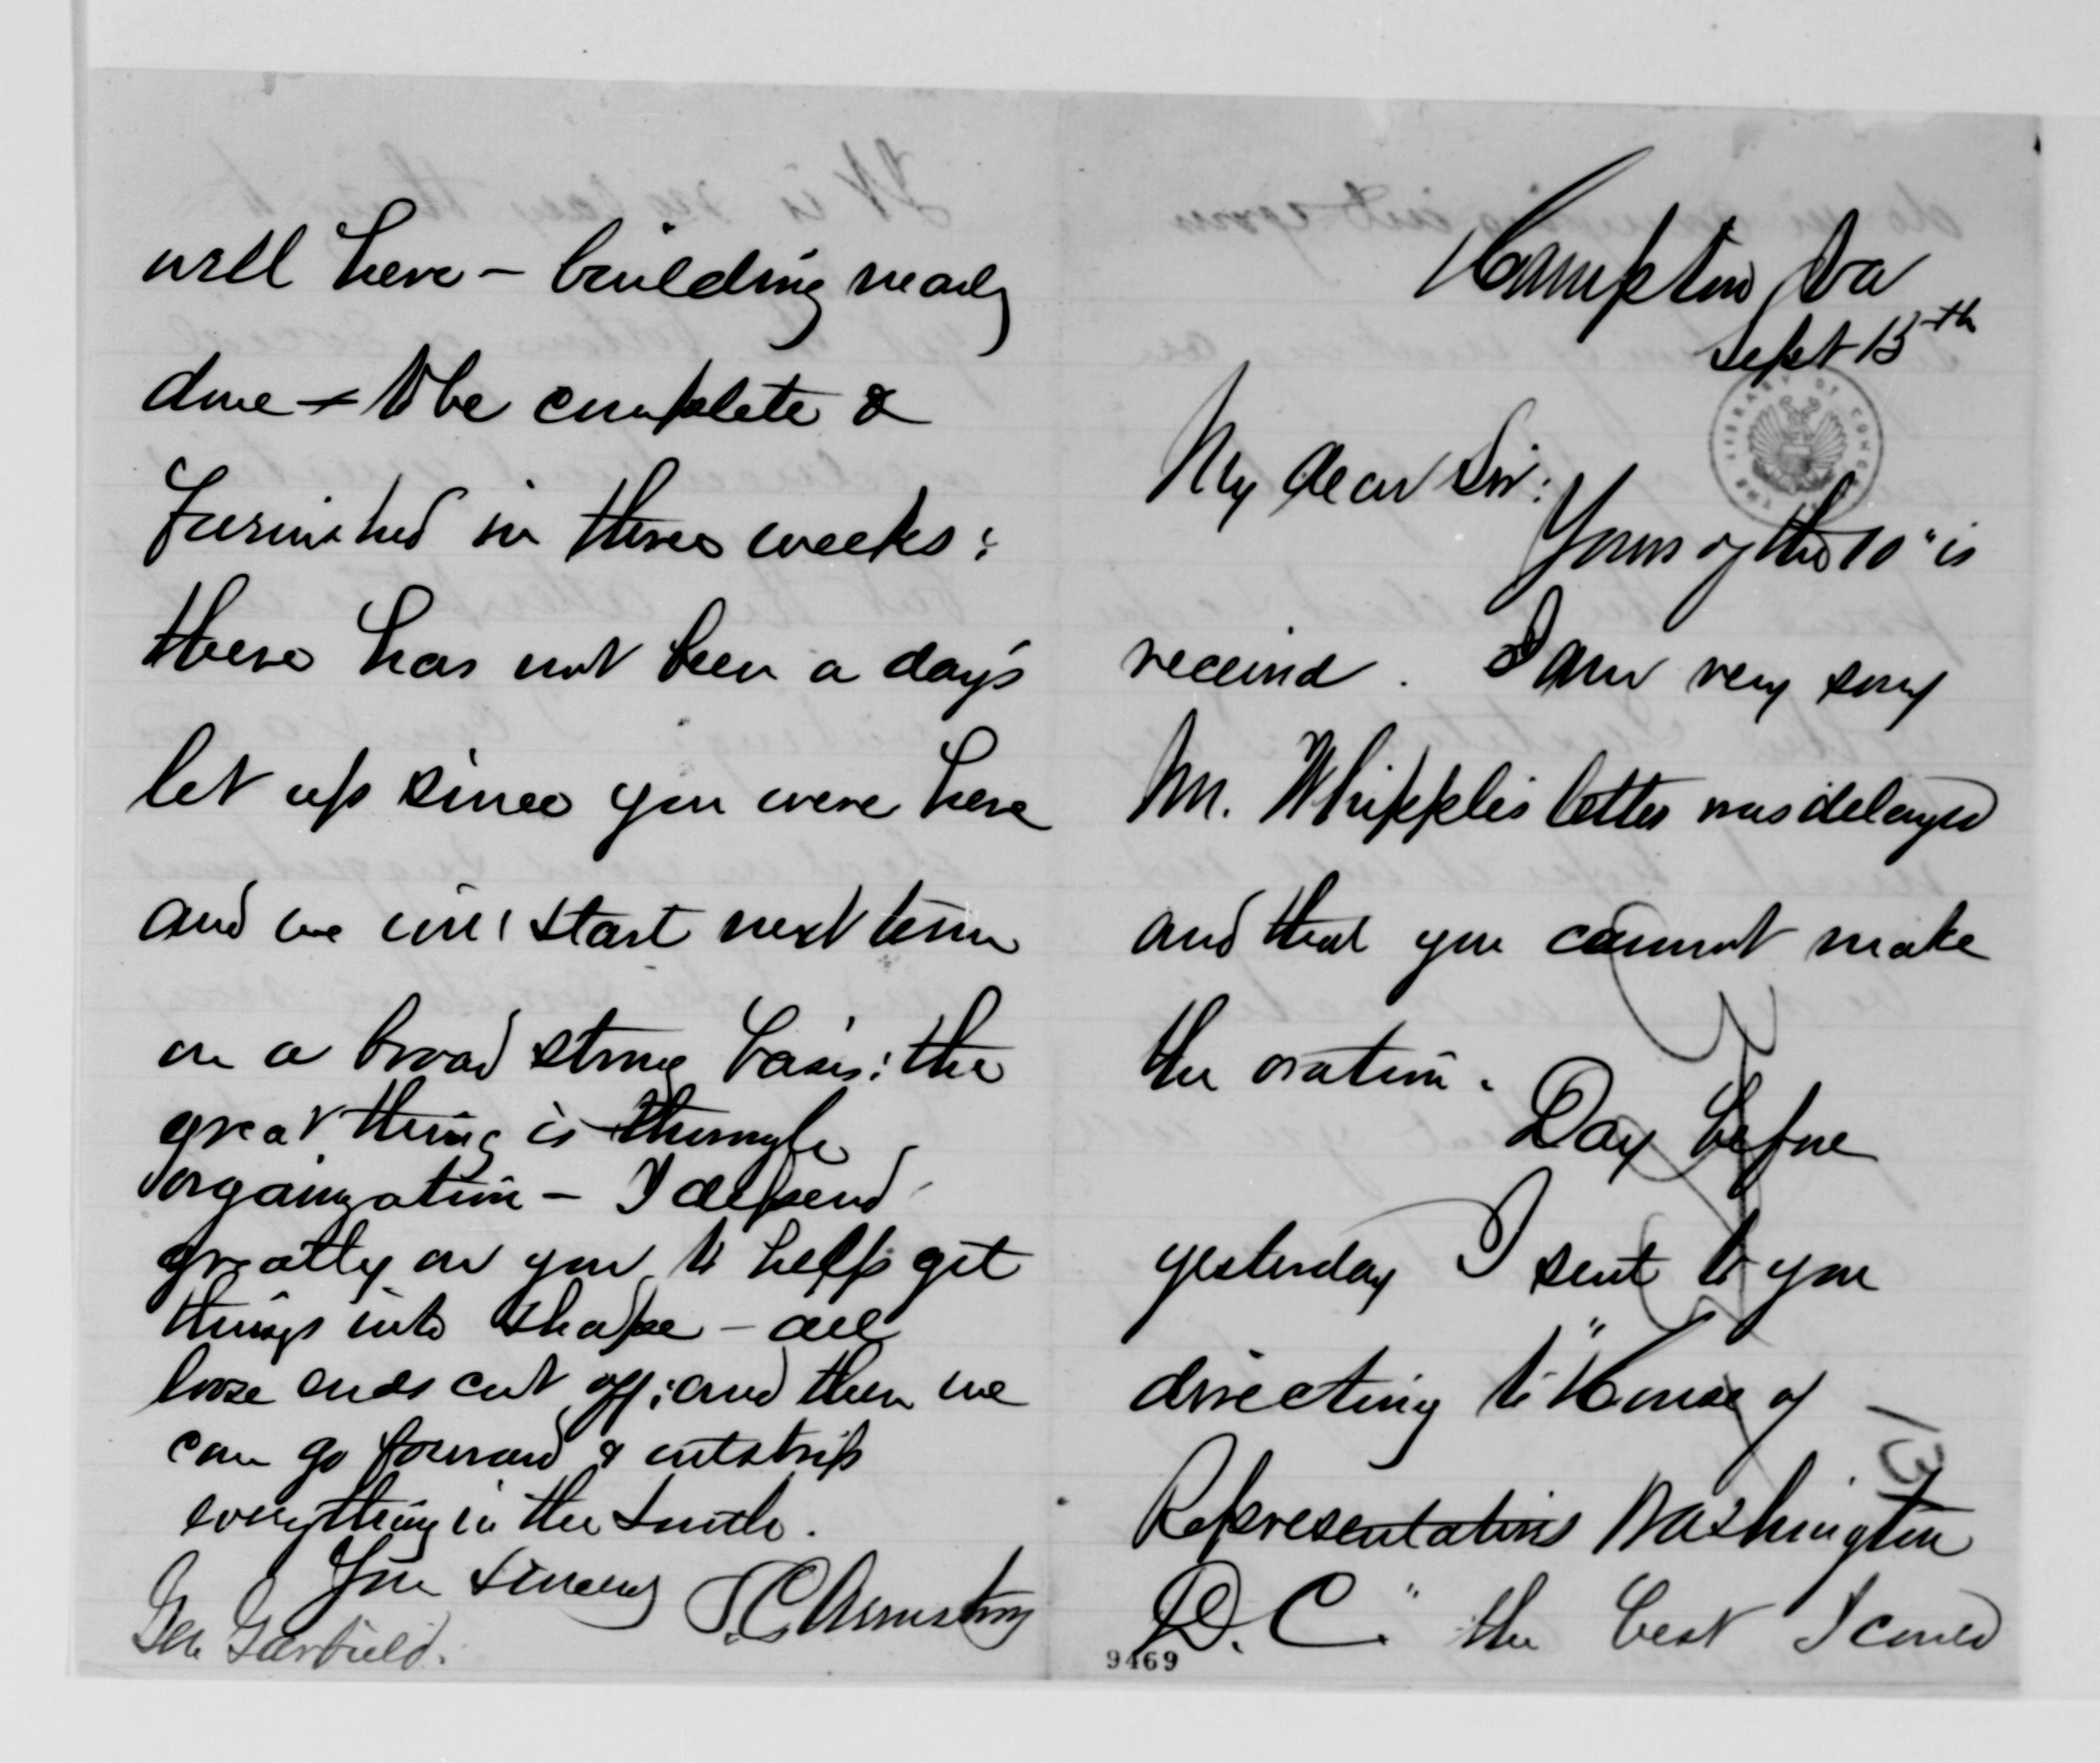 Hampton, Va
Sept 13th
My dear Sir:
Yours of the 10" is
received. I am very sorry
Mr. Whipple's letter was delayed
and that you cannot make
the oration.
Day before
yesterday I sent to you
directing to "House of
Representatives Washington
D.C." the best I could
9469
well here - building nearly
done - to be complete &
furnished in three weeks:
there has not been a day's
let up since you were here
and we will start next term
on a broad strong basis: the
great thing is thorough
organization - I depend
greatly on you to help get
things into shape - all
loose ends cut off; and then we
can go forward & outstrip
everything in the South.
Your sincerely S.C. Armstrong
Gen Garfield.
THE LIBRARY OF CONGRESS